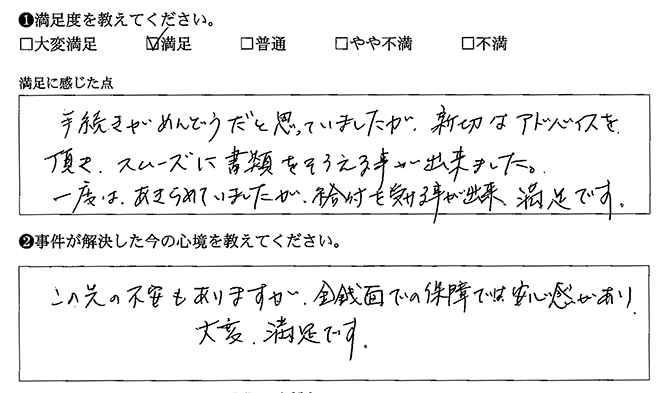 ❶満足度を教えてください。
□大変満足 ☑満足 □普通 □やや不満 □不満
満足に感じた点
手続きがめんどうだと思っていましたが、親切なアドバイスを
頂き、スムーズに書類をそろえる事が出来ました。
一度は、あきらめていましたが、給付を受ける事が出来、満足です。
❷事件が解決した今の心境を教えてください。
この先の不安もありますが、金銭面での保障では安心感があり
大変、満足です。